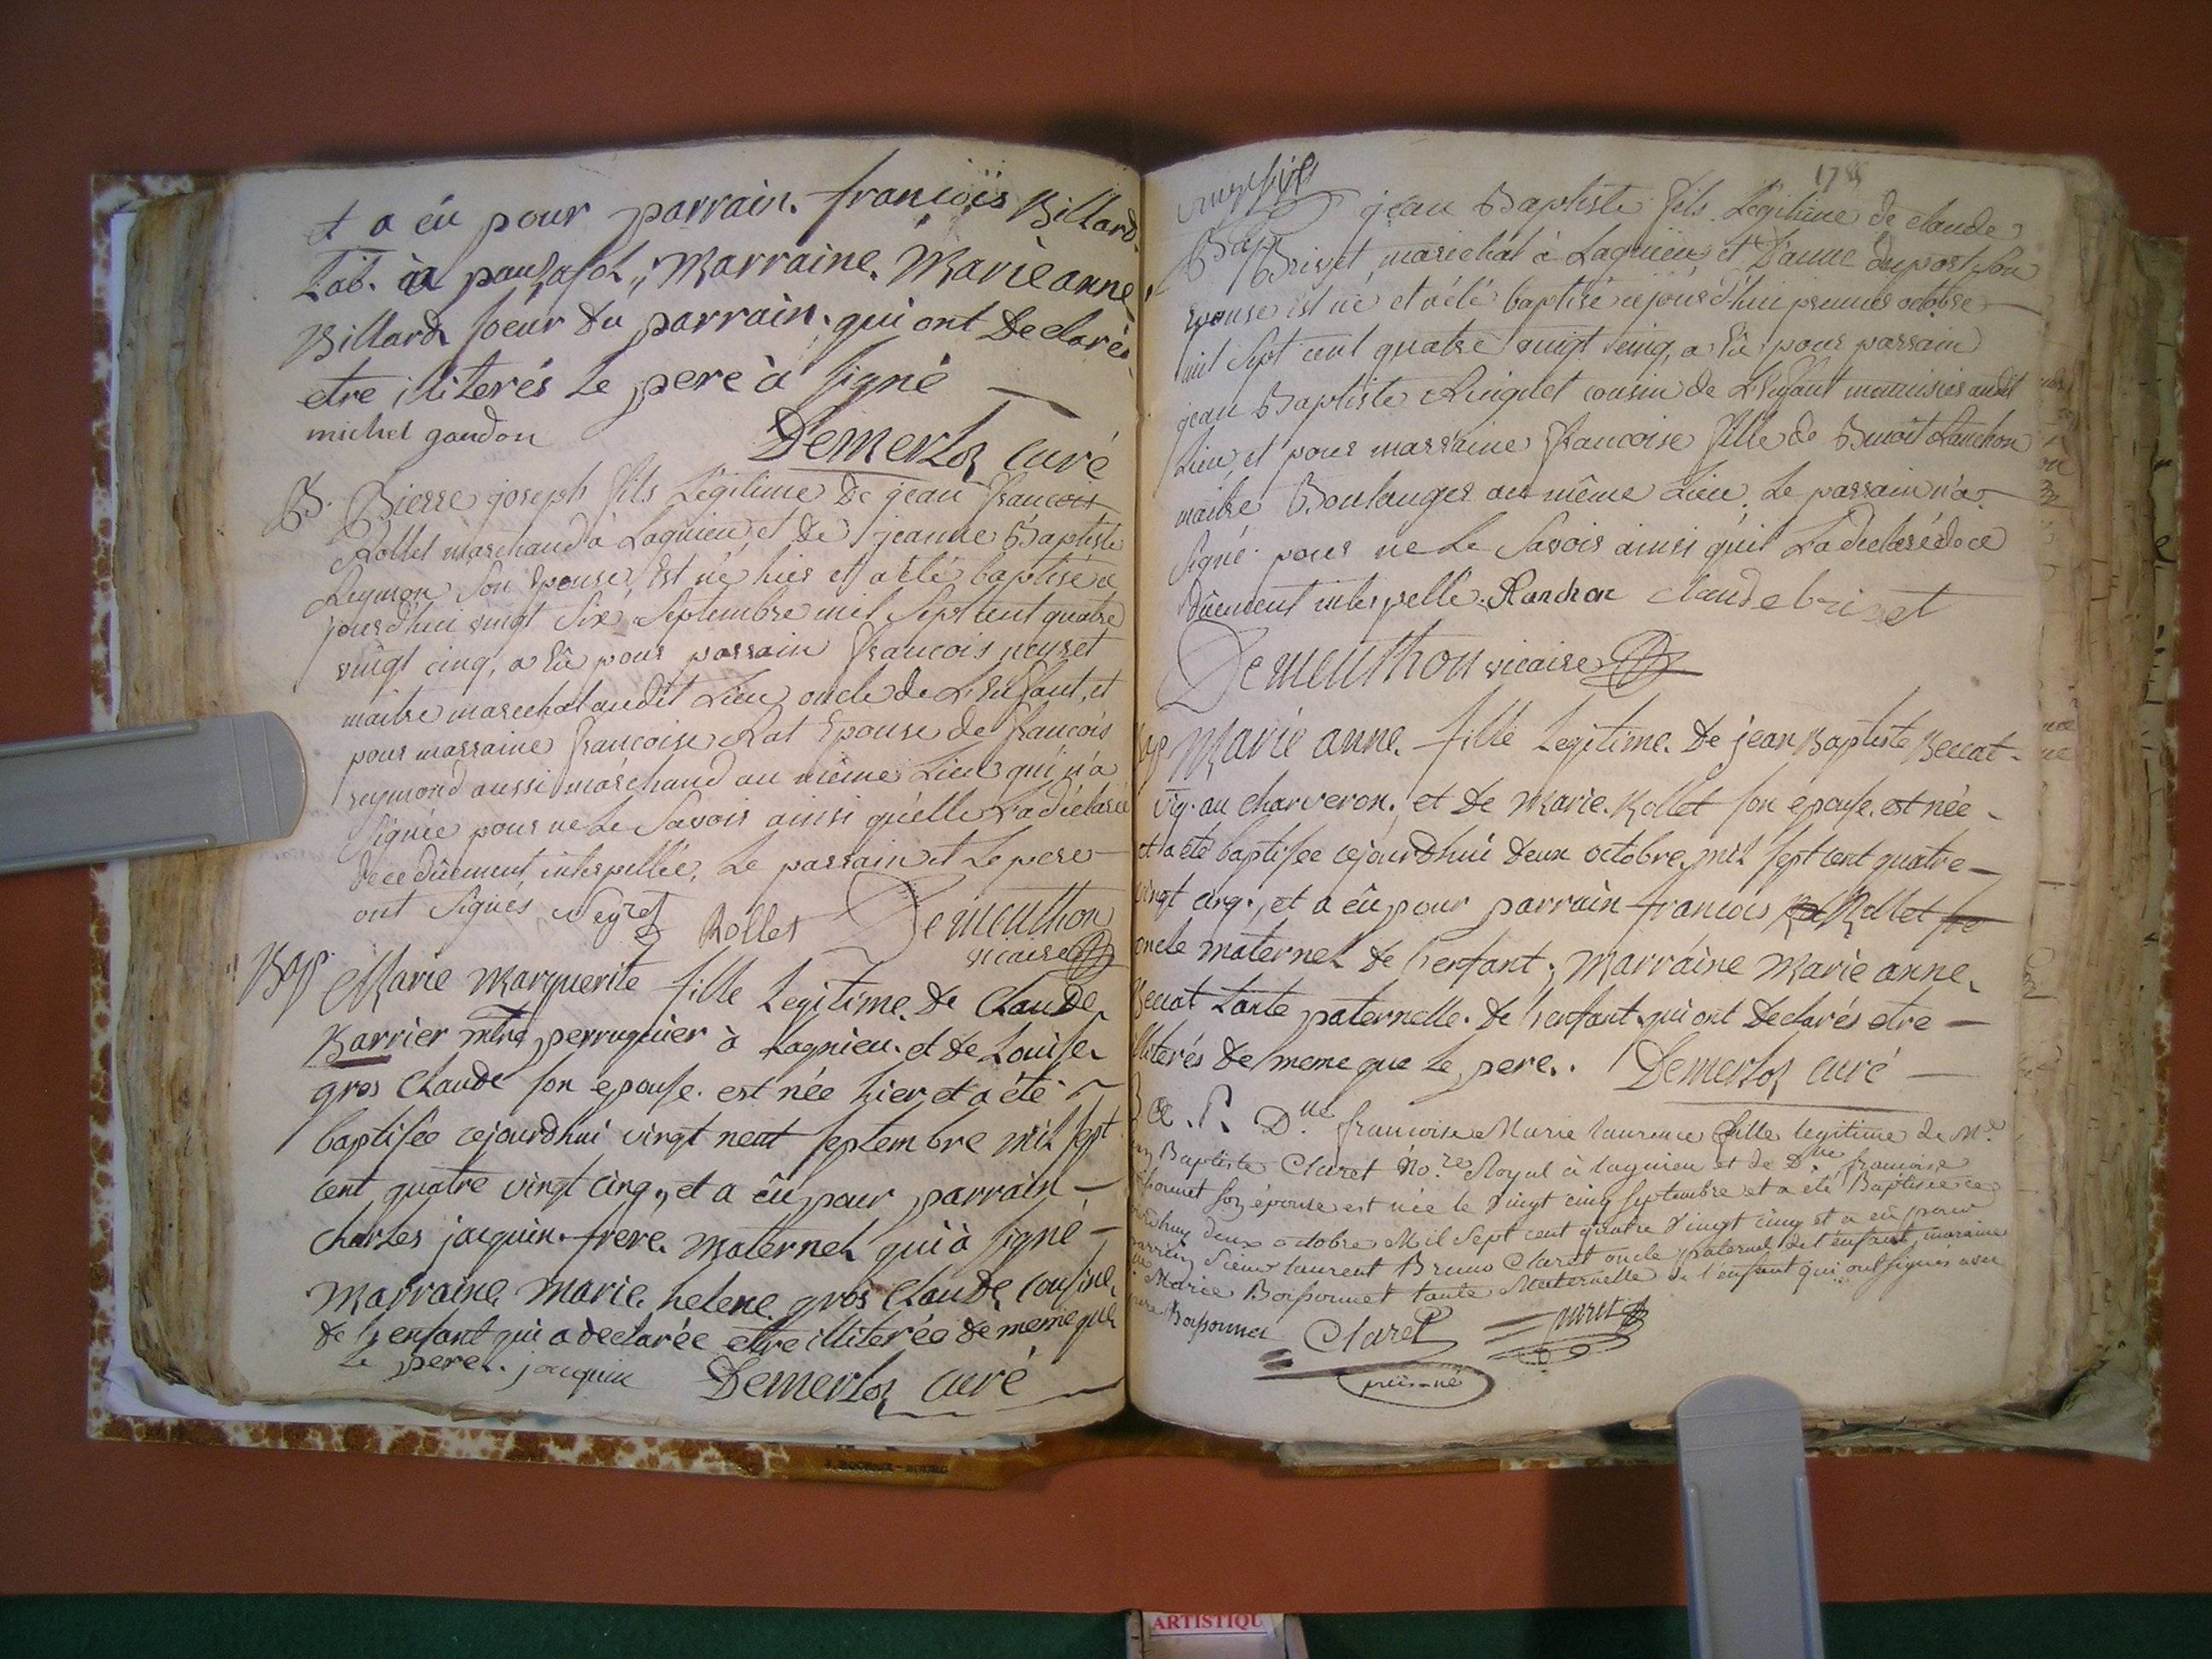 et a éu pour parrain. francoïs Billard.
Lab. a panSafol,; Marraine. Marie anne
Billard soeur du parrain. qui ont Declarés
etre illiterés le pere à signé
michel gandon
Demerloz curé
B. Pierre joseph fils Légitime de jean francois
Rollet marchand à Lagnieu, et de jeanne Baptiste
Reymon son epouse, Est né hier et a été baptisé ce
jourd'hui vingt Six Septembre mil Sept cent quatre
vingt cinq, a Eû pour parrain francois neyret
maitre marechal audit Lieu oncle de L'Enfant, et
pour marraine francoise Rat Epouse de francois
reymond aussi marchand au même Lieu qui n'a
Signée pour ne Le Savoir ainsi qu'elle L'a déclarée
de ce dûement interpellée, Le parrain et Le pere
ont Signés Neyret Rollet Demeuthon
vicaire
Bap. Marie Marguerite fille Legitime. De Claude
Barrier mtre perruquier à Lagnieu. et de Louise
gros Claude son epouse. est née hier et a été
baptisée cejourdhui vingt neuf septembre mil sept
cent quatre vingt cinq., et a éu pour parrain
charles jacquin frere. Maternel qui à signé
Marraine Marie helene gros Claude, cousine
de l'enfant qui a declarée etre illiterée de meme que
le pere. jacquin Demerloz curé
1785
Bap. jean Baptiste fils Légitime de claude
Brivet, marichal à Lagnieu, et D'anne duport son
epouse est né et a été baptisé cejourd'hui premier octobre
mil Sept cent quatre vingt cinq, a Eû pour parrain
jean Baptiste Ringuet cousin de L'Enfant menuisier audit
Lieu, et pour marraine francoise fille de Benoit Lanchon
maitre Boulanger au même Lieu, Le parrain n'a
Signé pour ne Le Savoir ainsi qu'il L'a declaré de ce
dûement interpellé. Ranchon claude brivet
Demeuthon vicaire
Bap Marie anne. fille Legitime. De jean Baptiste Beccat
vig. au charveron. et de Marie. Rollet son epouse. est née
et a été baptisée cejourdhui deux octobre mil sept cent quatre
vingt cinq., et a éu pour parrain francois Rollet
oncle maternel de l'enfant; Marraine Marie anne
Beccat tante paternelle. De l'enfant. qui ont declarés etre
illiterés de meme que le pere. Demerloz curé
D.lle francoise Marie laurence fille legitime de M.e
Baptiste Claret No.re Royal à lagnieu et de D.lle francoise
Bonpommet son épouse est née le vingt cinq septembre et a été Baptisée ce
jourdhuy deux octobre Mil Sept cent quatre vingt cinq et a eû pour
parrain Sieur laurent Bruno Claret oncle paternel de l'enfant, maraine
Marie Bonpommet tante Maternelle de l'enfant qui ont signés avec
Claret
puis-né
ARTISTIQU